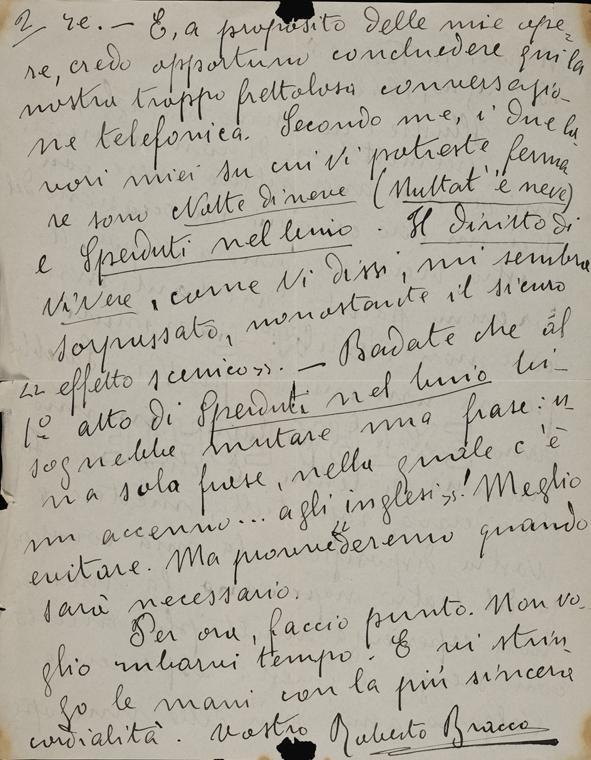 2 re. — E, a proposito delle mie ope-
re, credo opportuno concludere qui la
nostra troppo frettolosa conversazio-
ne telefonica. Secondo me, i due la-
vori miei su cui Vi potreste ferma
re sono Notte di neve (Nuttat' 'e neve)
e Sperduti nel buio. Il diritto di
vivere, come Vi dissi, mi sembra
sorpassato, nonostante il sicuro
"effetto scenico". — Badate che al
1º atto di Sperduti nel buio bi-
sognebbe mutare una frase: u-
na sola frase, nella quale c'è
un accenno... agli inglesi"! Meglio
evitare. Ma provvederemo quando
sarà necessario.
Per ora, faccio punto. Non vo-
glio rubarvi tempo. E vi strin-
go le mani con la più sincera
cordialità. Vostro Roberto Bracco